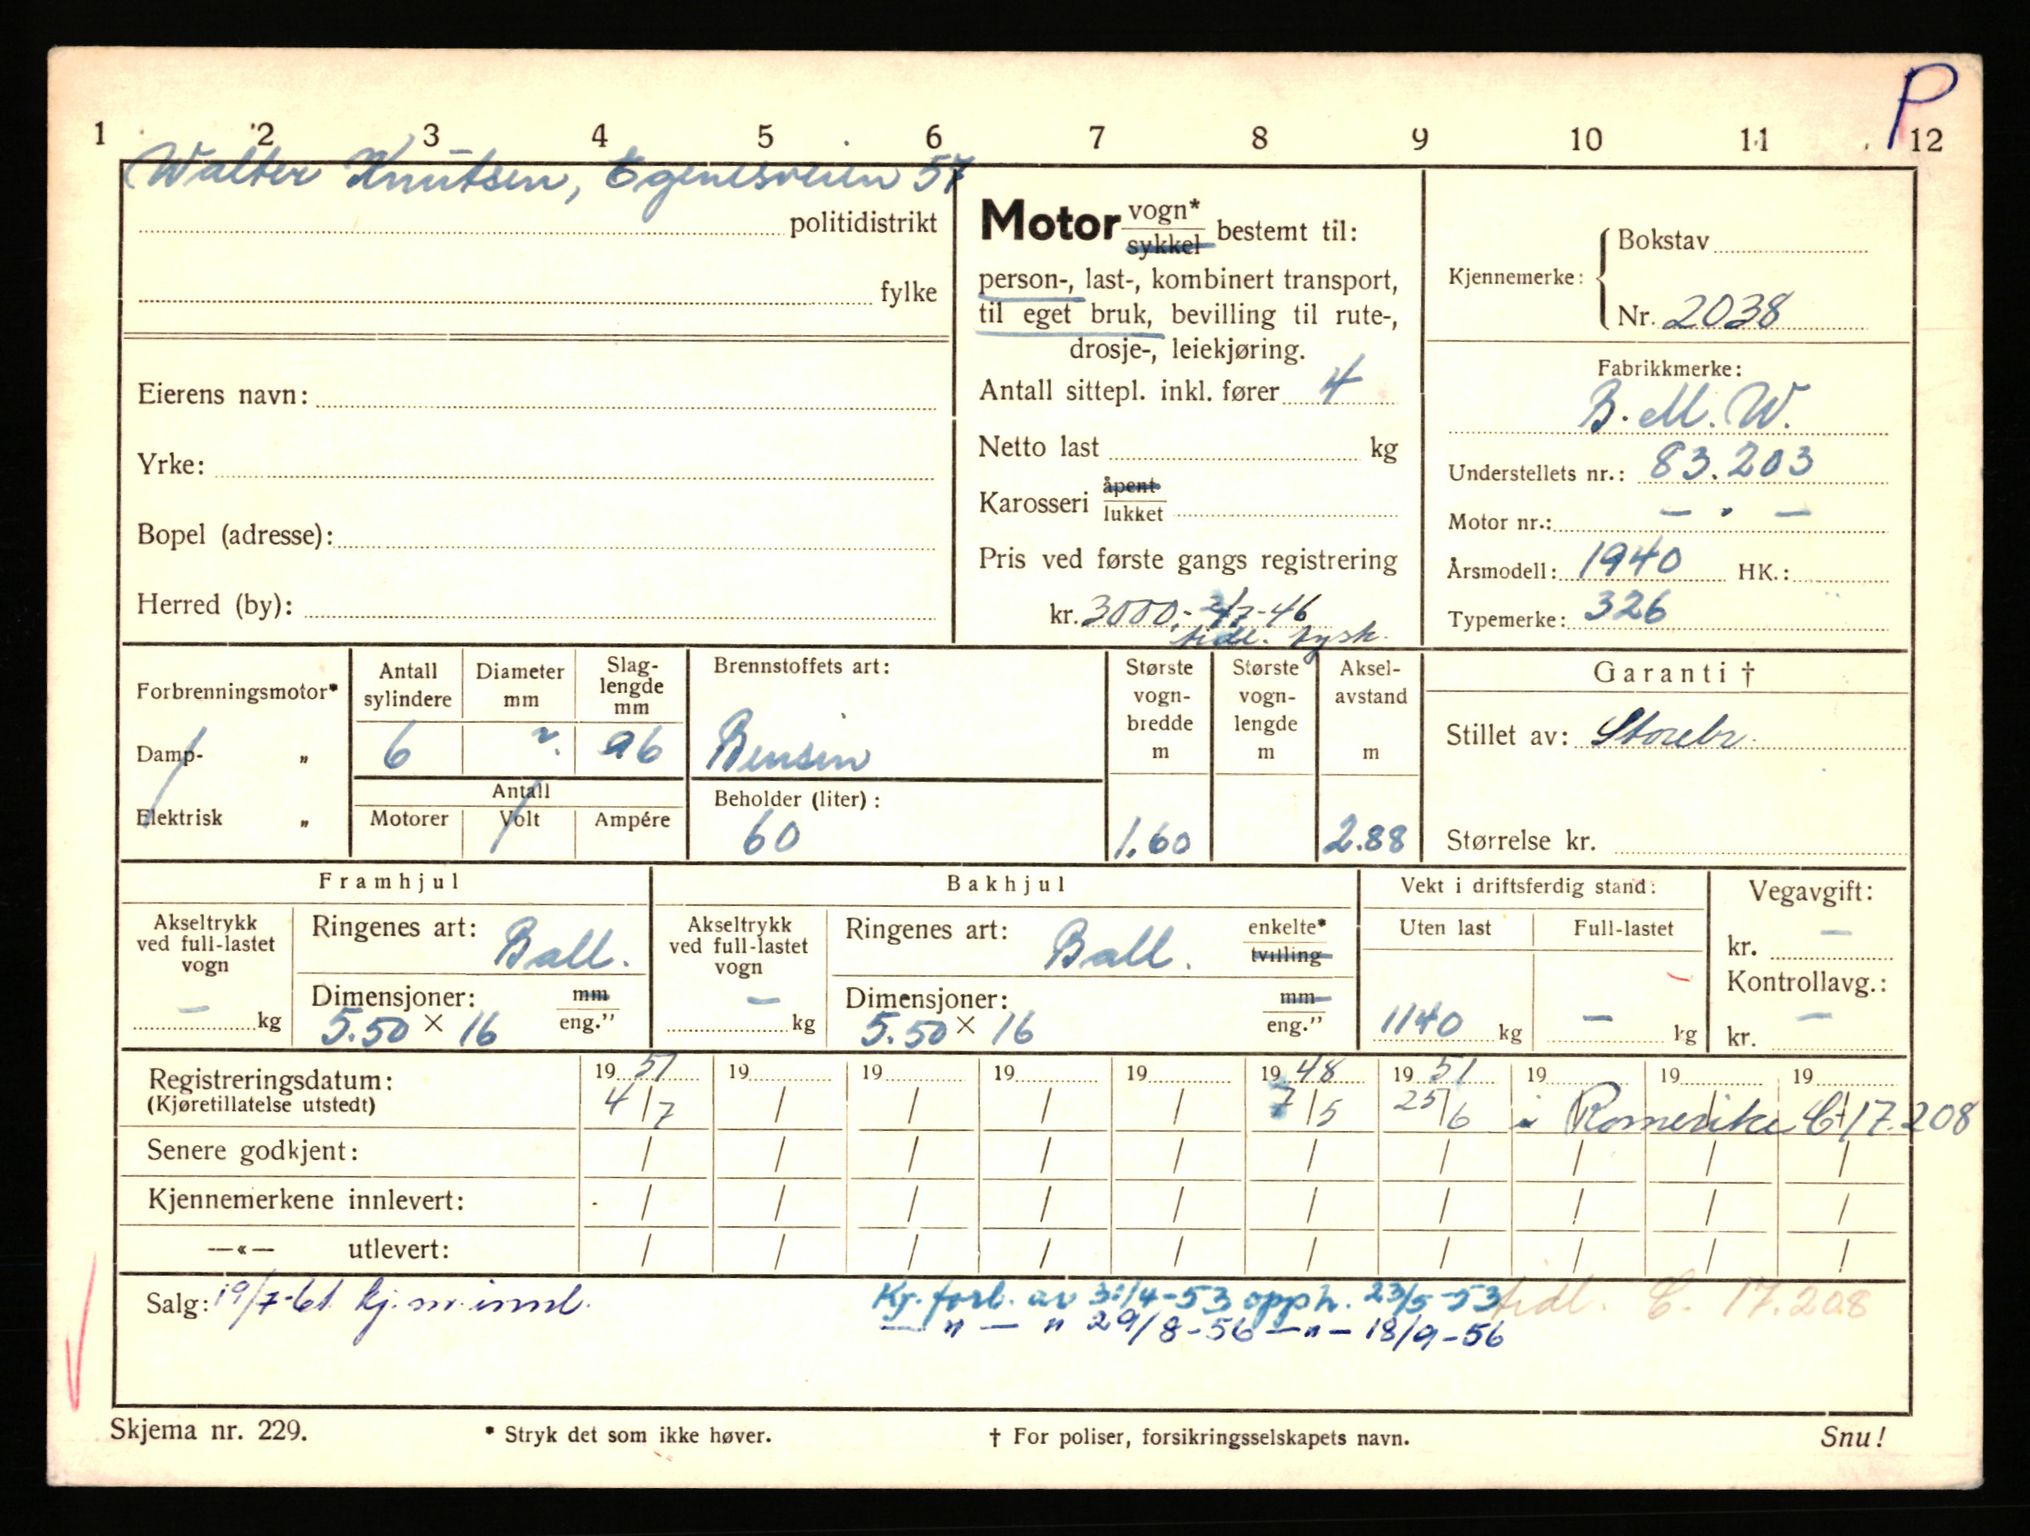 P
1 2 3 4 5 6 7 8 9 10 11 12
Walter Knutsen, Egenesveien 57
politidistrikt
fylke
Eierens navn:
Yrke:
Bopel (adresse):
Herred (by):
Motor vogn* sykkel bestemt til:
person-, last-, kombinert transport,
til eget bruk, bevilling til rute-,
drosje-, leiekjøring.
Antall sittepl. inkl. fører 4
Netto last kg
Karosseri åpent lukket
Pris ved første gangs registrering
kr. 3000,- 2/7-46
tidl. tysk.
Kjennemerke: Bokstav
Nr. 2038
Fabrikkmerke:
B.M.W.
Understellets nr.: 83.203
Motor nr.: — " —
Årsmodell: 1940 HK.:
Typemerke: 326
Forbrenningsmotor*
Damp- „
Elektrisk „
Antall sylindere
6
Diameter mm
Slag-lengde mm
96
Antall
Motorer Volt Ampére
Brennstoffets art:
Bensin
Beholder (liter):
60
Største vogn-bredde m
1.60
Største vogn-lengde m
Aksel-avstand m
2.88
Garanti †
Stillet av: Storebr.
Størrelse kr.
Framhjul
Akseltrykk ved full-lastet vogn
— kg
Ringenes art: Ball.
Dimensjoner: mm eng."
5.50 × 16
Bakhjul
Akseltrykk ved full-lastet vogn
— kg
Ringenes art: Ball. enkelte* tvilling
Dimensjoner: mm eng."
5.50 × 16
Vekt i driftsferdig stand:
Uten last Full-lastet
1140 kg — kg
Vegavgift:
kr. —
Kontrollavg.:
kr. —
Registreringsdatum: 19 57 19 19 19 19 19 48 19 51 19 19 19
(Kjøretillatelse utstedt) 4/7 / / / / 7/5 25/6 i Romerike C-17.208
Senere godkjent: / / / / / / / / / /
Kjennemerkene innlevert: / / / / / / / / / /
—«— utlevert: / / / / / / / / / /
Salg: 19/7-61 kj.m. innl. Kj. forb. av 30/4-53 opph. 23/5-53 tidl. C. 17.208
— " — " 29/8-56 — " — 18/9-56
Skjema nr. 229. * Stryk det som ikke høver. † For poliser, forsikringsselskapets navn. Snu!